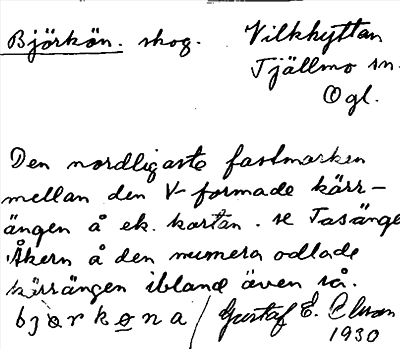 Björkön. skog. Vilkhyttan
Tjällmo sn.
Ögl.
Den nordligaste fastmarken
mellan den V-formade kärr-
ängen å ek. kartan. se Tasänge
Åkern å den numera odlade
kärrängen ibland även så.
bjorkona / Gustaf E.
1930